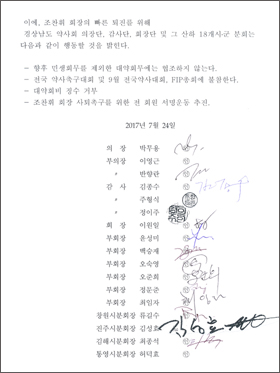 이에, 조찬휘 회장의 빠른 퇴진을 위해
경상남도 약사회 의장단, 감사단, 회장단 및 그 산하 18개시·군 분회는
다음과 같이 행동할 것을 밝힌다.
- 향후 민생회무를 제외한 대약회무에는 협조하지 않는다.
- 전국 약사축구대회 및 9월 전국약사대회, FIP총회에 불참한다.
- 대약회비 징수 거부
- 조찬휘 회장 사퇴촉구를 위한 전 회원 서명운동 추진.
2017년 7월 24일
의 장 박무용
부의장 이영근
〃 반향란
감 사 김종수
〃 주형식
〃 정이주
회 장 이원일
부회장 윤성미
부회장 백승재
부회장 오숙영
부회장 오준희
부회장 정문준
부회장 최임자
창원시분회장 류길수
진주시분회장 김성호
김해시분회장 최종석
통영시분회장 허덕효